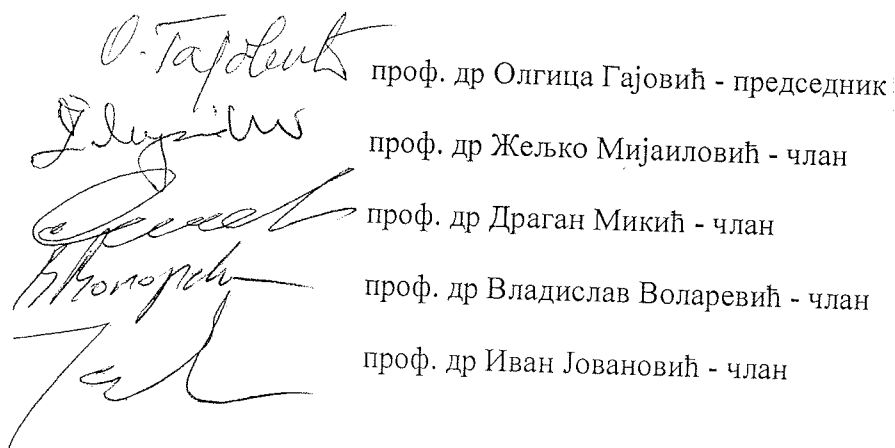 О. Гајовић проф. др Олгица Гајовић - председник
проф. др Жељко Мијаиловић - члан
проф. др Драган Микић - члан
проф. др Владислав Воларевић - члан
проф. др Иван Јовановић - члан